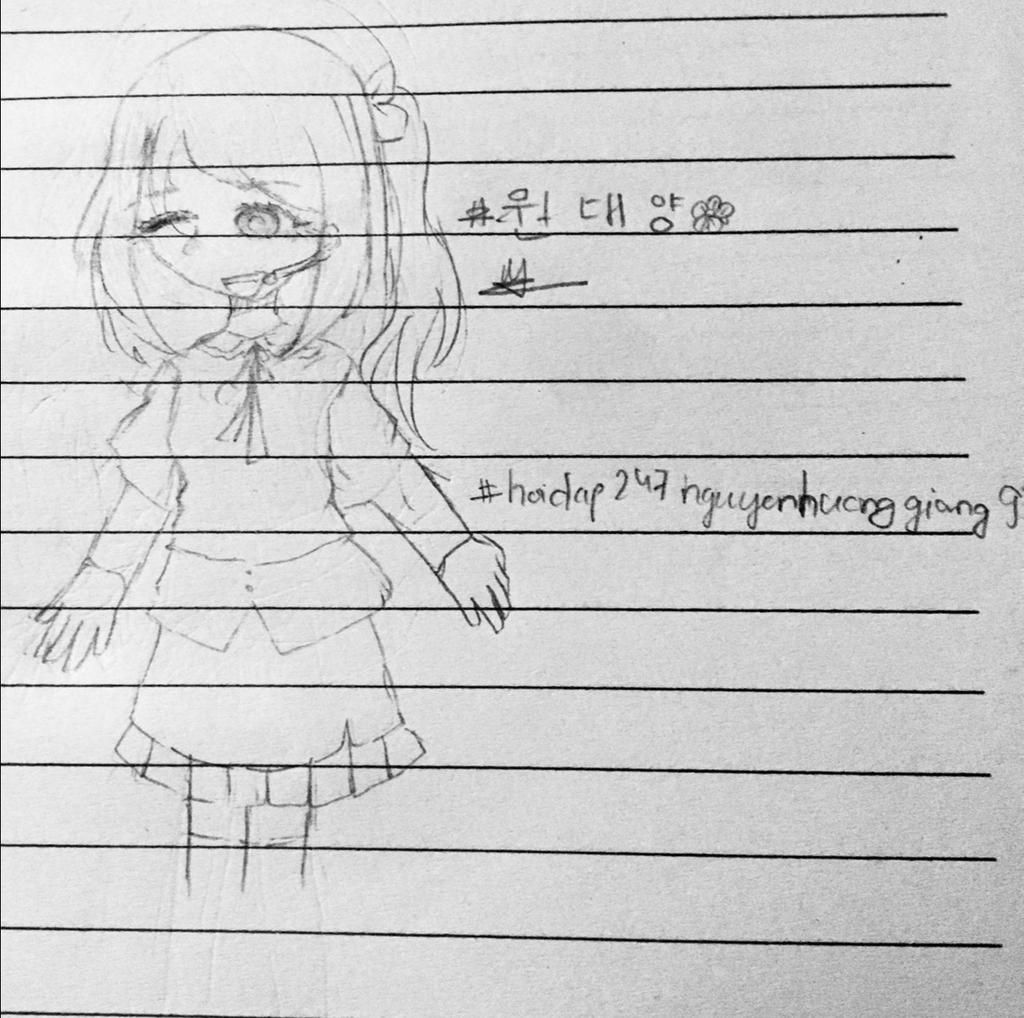 #원 대 양
#hoidap247 nguyenhuong giang